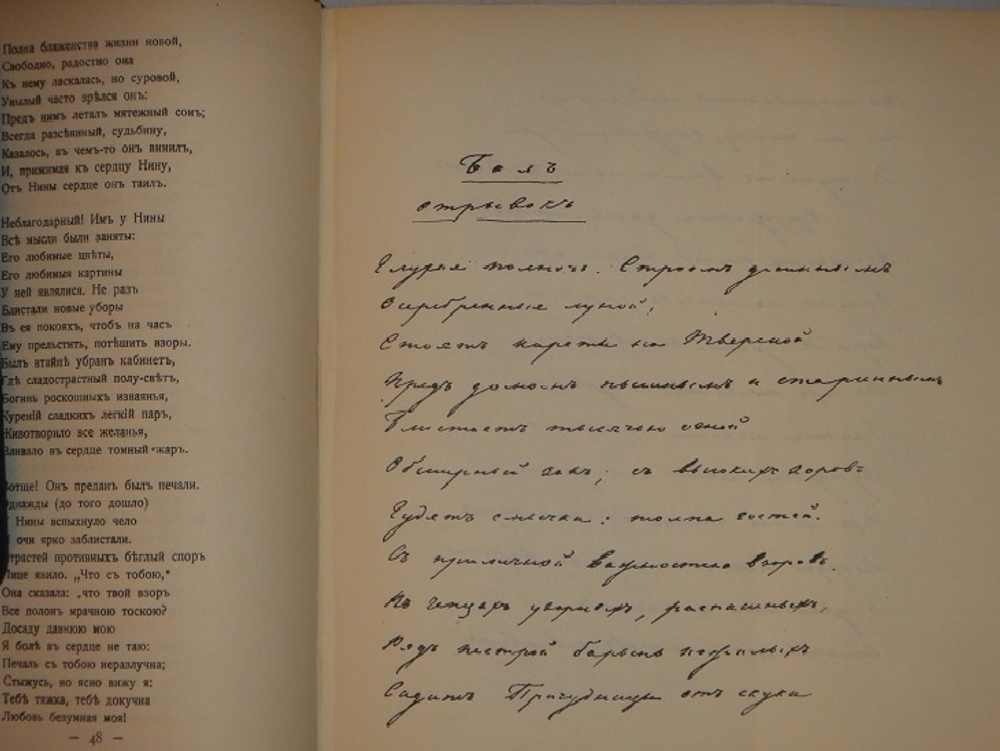 Полна блаженства жизни новой,
Свободно, радостно она
Къ нему ласкалась, но суровой,
Унылый часто зрѣлся онъ:
Предъ нимъ леталъ мятежный сонъ;
Всегда разсѣянный, судьбину,
Казалось, въ чемъ-то онъ винилъ,
И, прижимая къ сердцу Нину,
Отъ Нины сердце онъ таилъ.
Неблагодарный! Имъ у Нины
Всѣ мысли были заняты:
Его любимые цвѣты,
Его любимыя картины
У ней являлися. Не разъ
Блистали новые уборы
Въ ея покояхъ, чтобъ на часъ
Ему прельстить, потѣшить взоры.
Былъ втайнѣ убранъ кабинетъ,
Гдѣ сладострастный полу-свѣтъ,
Богинь роскошныхъ изваянья,
Куреній сладкихъ легкій паръ,
Животворило все желанья,
Вливало въ сердце томный жаръ.
Вотще! Онъ преданъ былъ печали.
Однажды (до того дошло)
У Нины вспыхнуло чело
И очи ярко заблистали.
Страстей противныхъ бѣглый споръ
Лице явило. „Что съ тобою,"
Она сказала: „что твой взоръ
Все полонъ мрачною тоскою?
Досаду давнюю мою
Я болѣ въ сердце не таю:
Печаль съ тобою неразлучна;
Стыжусь, но ясно вижу я:
Тебѣ тяжка, тебѣ докучна
Любовь безумная моя!
— 48 —
Балъ
отрывокъ
Глухая полночь. Строемъ длиннымъ
Осеребренныя луной,
Стоятъ кареты на Тверской
Предъ домомъ пышнымъ и стариннымъ
Блистаетъ тысячью огней
Обширный залъ; съ высокихъ хоровъ
Гудятъ смычки; толпа гостей.
Съ приличной важностью взоровъ.
Въ чепцахъ узорныхъ, распашныхъ,
Рядъ пестрой барынь пожилыхъ
Сидитъ. Причудницы отъ скуки